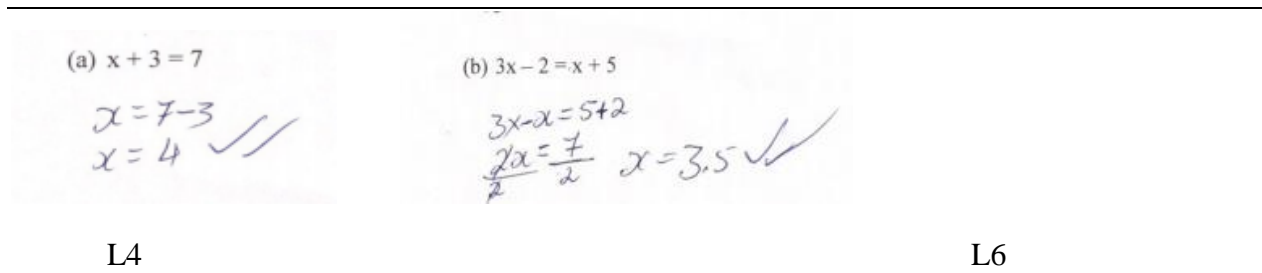 (a) x + 3 = 7
x = 7-3
x = 4
(b) 3x – 2 = x + 5
3x-x = 5+2
2x/2 = 7/2 x = 3.5
L4 L6